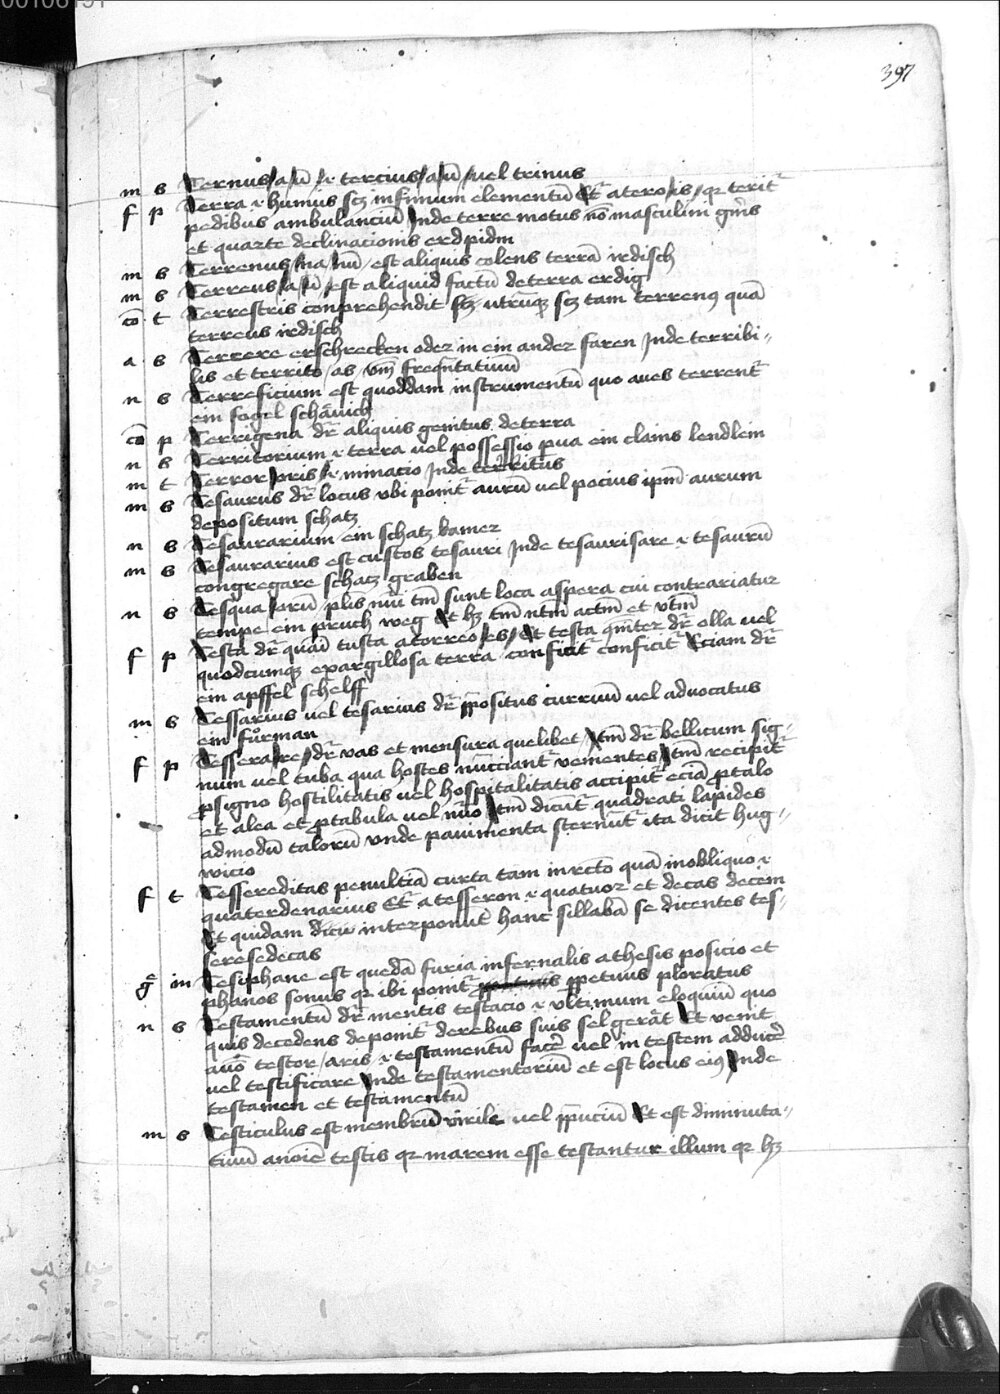 397
m s Ternus a ū i tercius a ū vel trinus
f p Terra i humus scz infimum elementū Et̄ a tero is qr terit̄
pedibus ambulanciū Inde terre motus nō masculini gn̄is
et quarte declinacionis erdpidm
m s Terrenus na nū est aliquis colens terrā irdisch
m s Terreus a ū est aliquid factū de terra erdig
cō t Terrestris conprehendit scz utrūqz scz tam terrenꝰ quā
terreus irdisch
a s Terrere erschrecken oder in ein ander faren Inde terribi-
lis et territo as vm̄ freqn̄tatiuū
n s Terreficium est quoddam instrumentū quo aues terrent̄
ein fogel schäuich
cō p Terrigena dr̄ aliquis genitus de terra
n s Territorium i terra vel possessio pua ein clains lendlein
m t Terror oris i minacio Inde territus
m s Tesaurus dr̄ locus vbi ponit̄ aurū vel pocius ipm̄ aurum
depositum schatz
n s Tesaurarium ein schatz kamer
m s Tesaurarius est custos tesauri Inde tesaurisare i tesaurū
congregare schatz graben
n s Tesqua orū plis nūi tm̄ sunt loca aspera cui contrariatur
tempe ein pruch weg Et hz tm̄ ntm̄ actm̄ et vtm̄
f p Testa dr̄ quasi tusta a torreo es Et testa qm̄ter dr̄ olla vel
quodcumqz ex argillosa terra conficit̄ conficit̄ Eciam dr̄
ein apffel schelff
m s Tessarius vel tesarius dr̄ ppositus curruum vel aduocatus
ein fůrman
f p Tessera re dr̄ vas et mensura quelibet Itm̄ dr̄ bellicum sig-
num vel tuba qua hostes nūcciant̄ vementes Itm̄ recipit̄
p signo hostilitatis vel hospitalitatis accipit̄ eciā p talo
et alea et p tabula vel nūo Itm̄ dicūt̄ quadrati lapides
ad modū talorū vnde pauimenta sternūt̄ ita dicit hug-
wicio
f t Tessereditas penultiā curta tam in rcto quā in obliquo i
quaterdenarius Et̄ a tesseron i quatuor et decas decem
Et quidam dicū interponūt̄ hanc sillabā se dicentes tes-
seresedecas
g m Tesiphane est quedā furia infernalis a thesis posicio et
phanos sonus qr ibi ponit̄ ppetuus ploratus
n s Testamentū dr̄ mentis testacio i vltimum eloquiū quo
quis decedens deponit̄ de rebus suis sel gerāt Et venit
a vō testor aris i testamentū facē vel in testem adducē
vel testificare Inde testamentoriū et est locus eiꝰ Inde
testamen et testamentū
m s Testiculus est membrū virile vel ppuciū Et est diminuta-
tiuū a noīe testis qr marem esse testantur illum qr hz